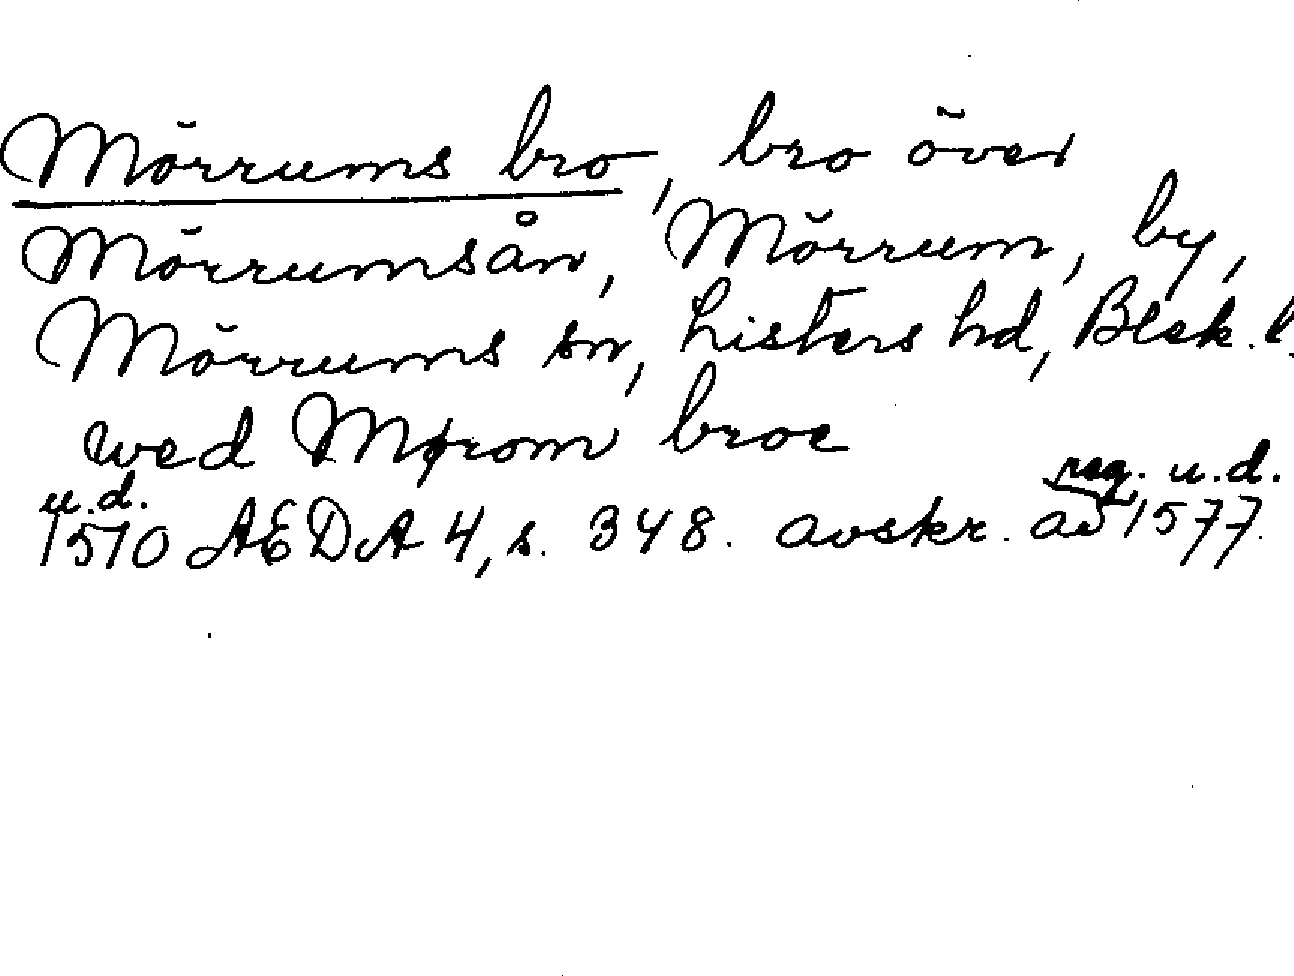 Mörrums bro, bro över
Mörrumsån, Mörrum, by,
Mörrums sn, Listers hd, Blek. l.
wed Mørom broe
u.d. reg. u.d.
1510 AEDA 4, s. 348. avskr. av 1577.